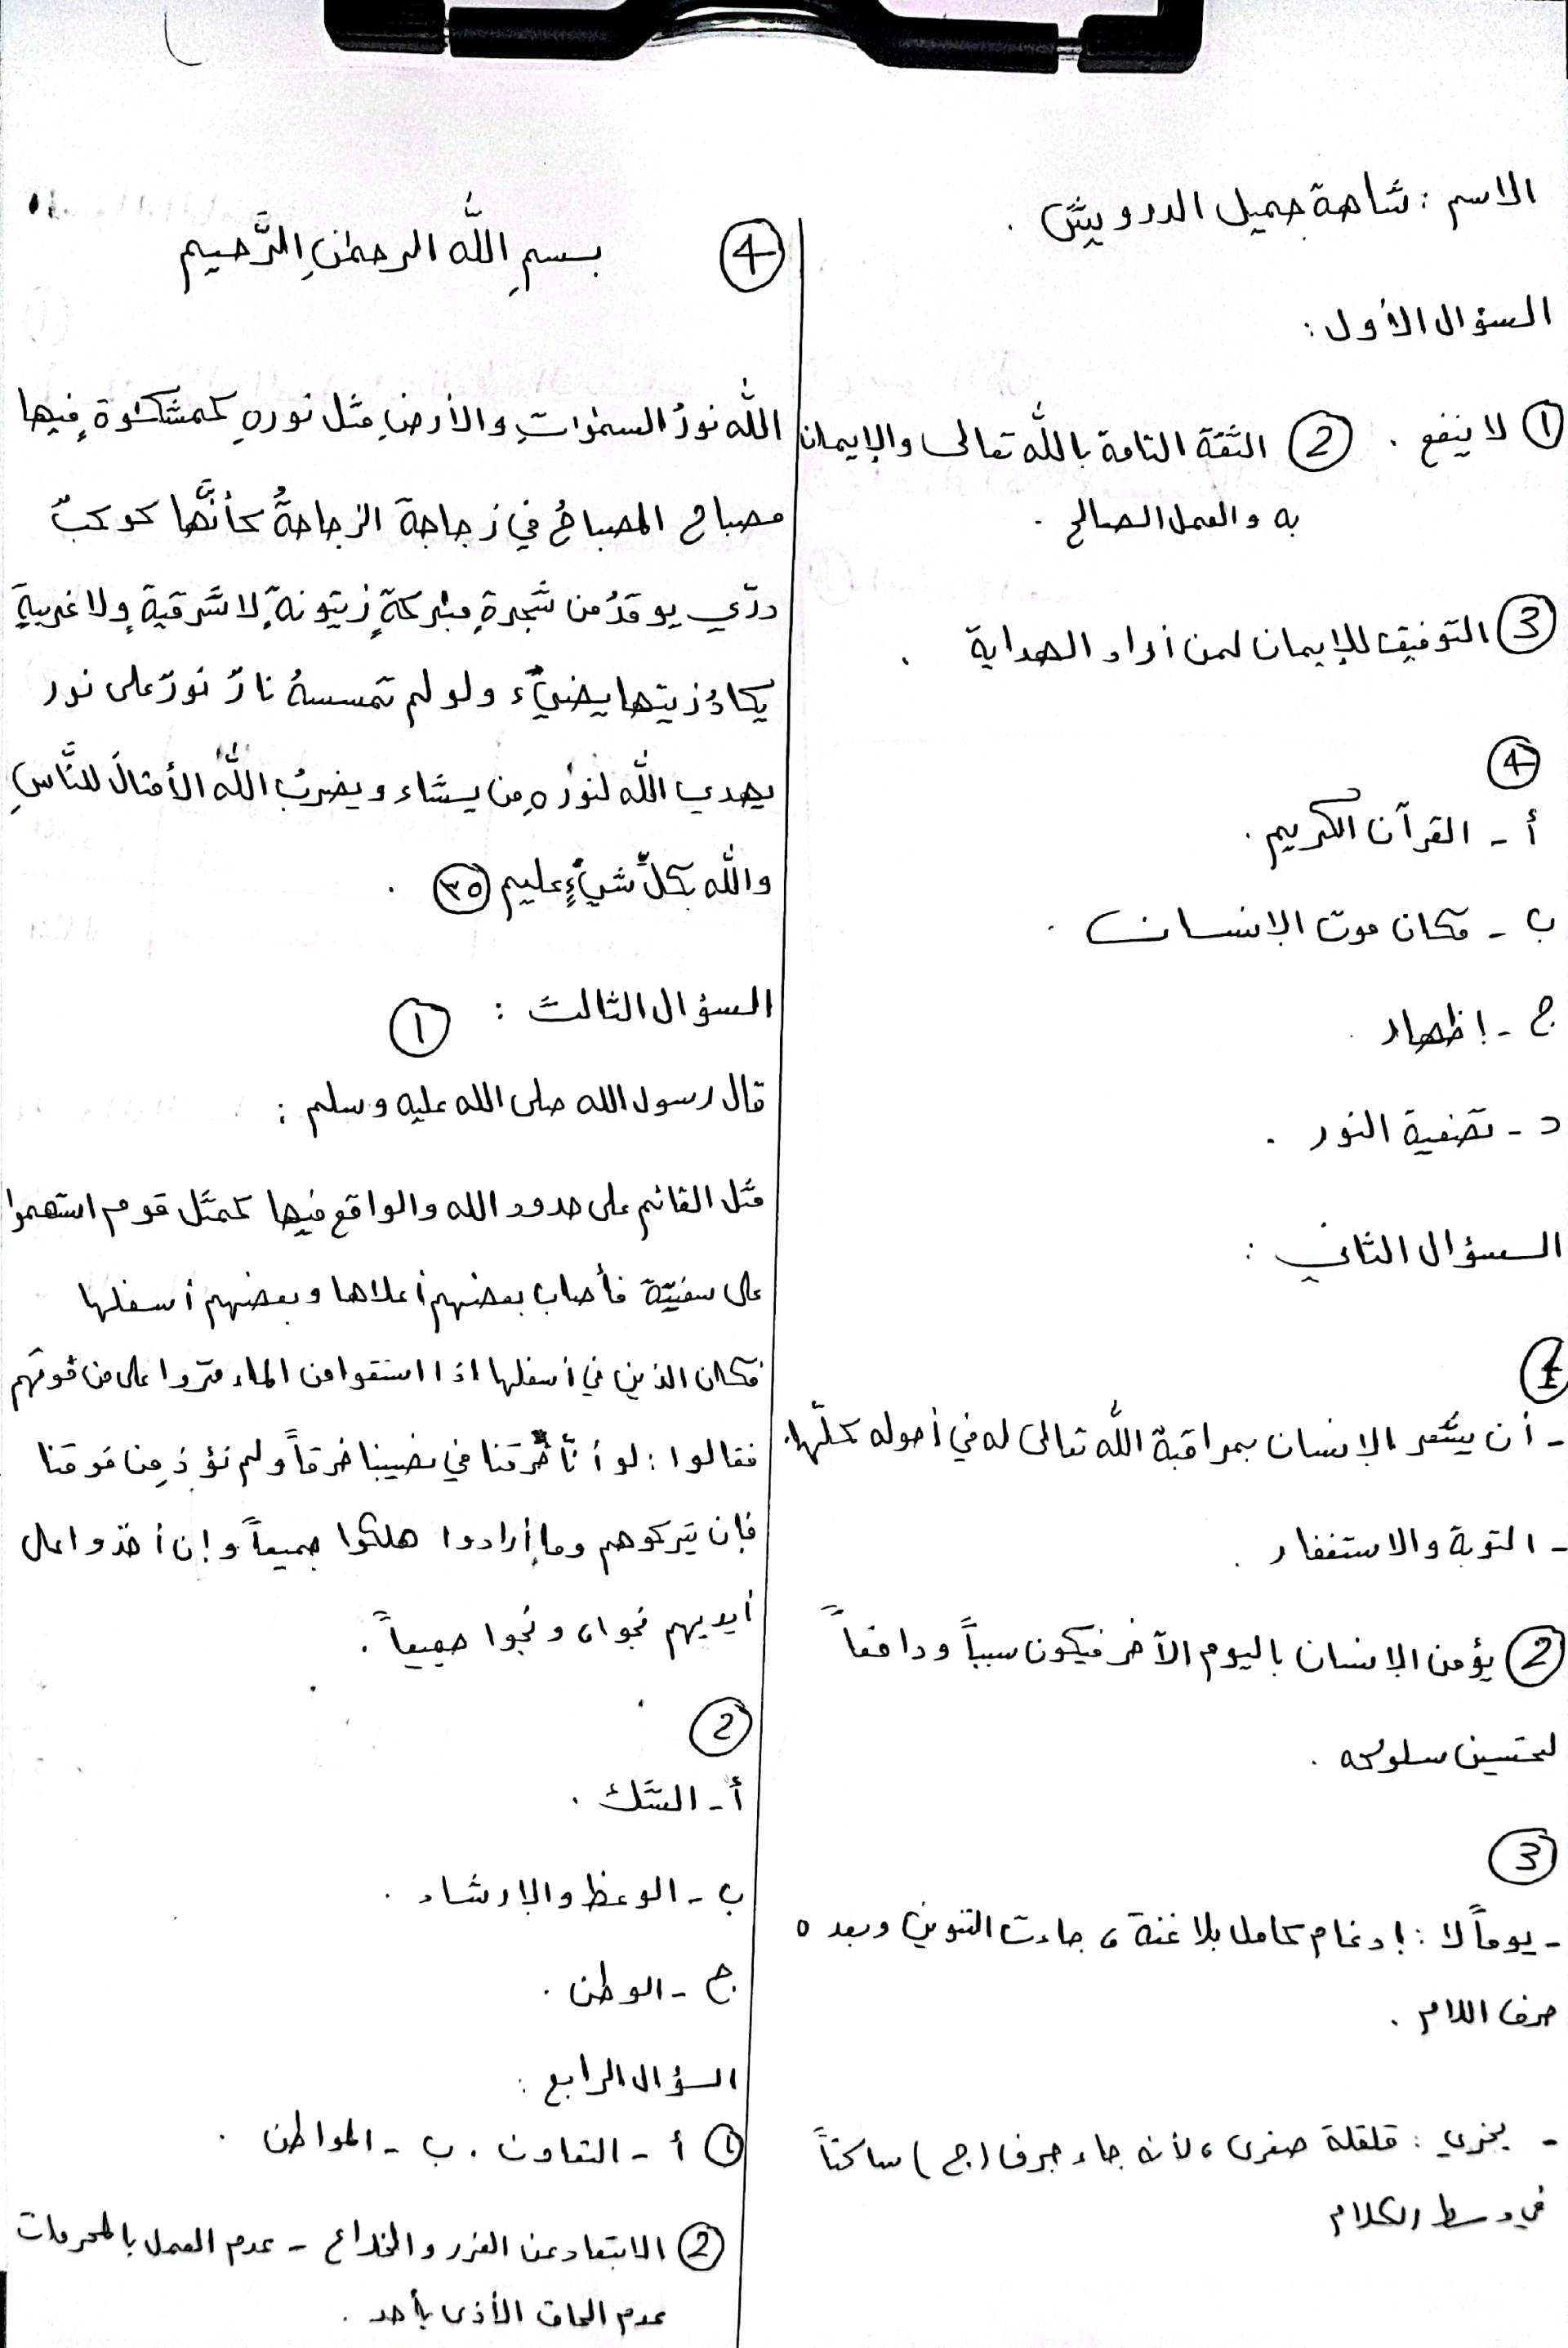 الاسم : شاهة جميل الدرويش .
السؤال الأول :
① لا ينفع . ② الثقة التامة بالله تعالى والإيمان
به والعمل الصالح .
③ التوفيق للإيمان لمن أراد الهداية .
④
أ - القرآن الكريم .
ب - مكان موت الإنسان .
ج - إظهار .
د - تصفية النور .
السؤال الثاني :
①
- أن يشعر الإنسان بمراقبة الله تعالى له في أحوله كلّها .
- التوبة والاستغفار .
② يؤمن الإنسان باليوم الآخر فيكون سبباً ودافعاً
لتحسين سلوكه .
③
- يوماً لا : إدغام كامل بلا غنة ، جاءت التنوين وبعده
حرف اللام .
- يجزي : قلقلة صغرى ، لأنه جاء حرف (ج) ساكناً
في وسط الكلام
④ بسمِ الله الرحمٰنِ الرَّحيم
الله نورُ السمٰواتِ والأرضِ مثل نورهِ كمشكٰوةٍ فيها
مصباح المصباحُ في زجاجة الزجاجةُ كأنَّها كوكبٌ
درّي يوقدُ من شجرةٍ مبٰركةٍ زيتونةٍ لا شرقيةٍ ولا غربيةٍ
يكادُ زيتها يضيٓء ولو لم تمسسهُ نارٌ نورٌ على نور
يهدي الله لنورهِ من يشاء ويضربُ اللهُ الأمثالَ للنَّاسِ
والله بكلِّ شيءٍ عليم ㉟ .
السؤال الثالث : ①
قال رسول الله صلى الله عليه وسلم :
مثل القائم على حدود الله والواقع فيها كمثل قوم استهموا
على سفينة فأصاب بعضهم أعلاها وبعضهم أسفلها
فكان الذين في أسفلها اذا استقوا من الماء مرّوا على من فوقهم
فقالوا : لو أنّا خرقنا في نصيبنا خرقاً ولم نؤذ من فوقنا
فإن يتركوهم وما أرادوا هلكوا جميعاً وإن أخذوا على
أيديهم نجوا ، ونجوا جميعاً .
②
أ - الشك .
ب - الوعظ والإرشاد .
ج - الوطن .
السؤال الرابع :
① أ - التعاون . ب - المواطن .
② الابتعاد عن الغرر والخداع - عدم العمل بالمحرمات
عدم الحاق الأذى بأحد .